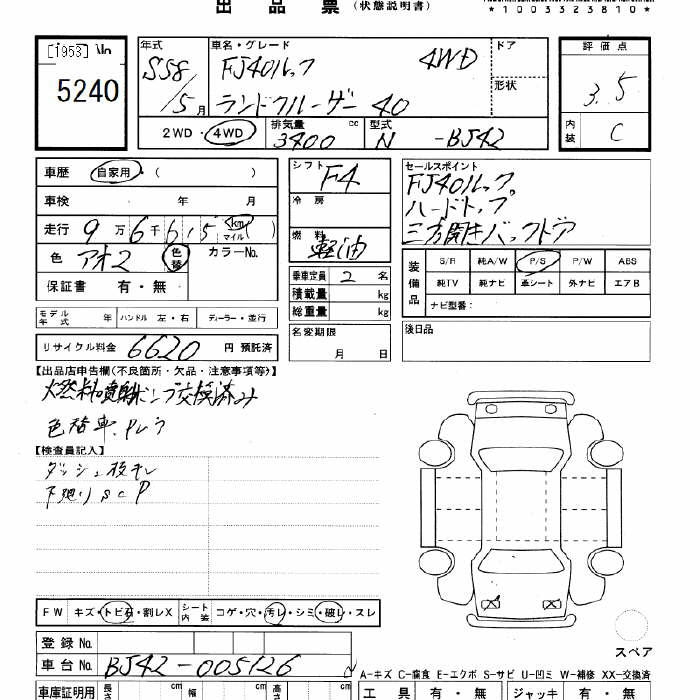 出品票 (状態説明書)
*1003323810*
[1953]
5240
年式 S58/5月
車名・グレード FJ40ルック 4WD
ランドクルーザー 40
ドア
形状
2WD・4WD 排気量 3400 cc 型式 N -BJ42
評価点 3.5
内装 C
車歴 自家用・( )
車検 年 月
走行 9万6千6 km マイル
色 アオ2 色替 カラーNo.
保証書 有・無
シフト F4
冷房
燃料 軽油
乗車定員 2 名
積載量 kg
総重量 kg
名変期限 月 日
セールスポイント
FJ40ルック。
ハードトップ
三方開きバックドア
装備品 S/R 純A/W P/S P/W ABS
純TV 純ナビ 革シート 外ナビ エアB
ナビ型番:
後日品
モデル年式 年 ハンドル 左・右 ディーラー・並行
リサイクル料金 6620 円 預託済
【出品店申告欄(不良箇所・欠品・注意事項等)】
燃料噴射ポンプ交換済み
色替車、
【検査員記入】
ダッシュ
下廻り
FW キズ・トビ石・割レX シート内装 コゲ・穴・汚レ・シミ・破レ・スレ
登録No.
車台No. BJ42-005126
スペア
A-キズ C-腐食 E-エクボ S-サビ U-凹ミ W-補修 XX-交換済
車庫証明用 長さ cm 幅 cm 高さ cm 工具 有・無 ジャッキ 有・無